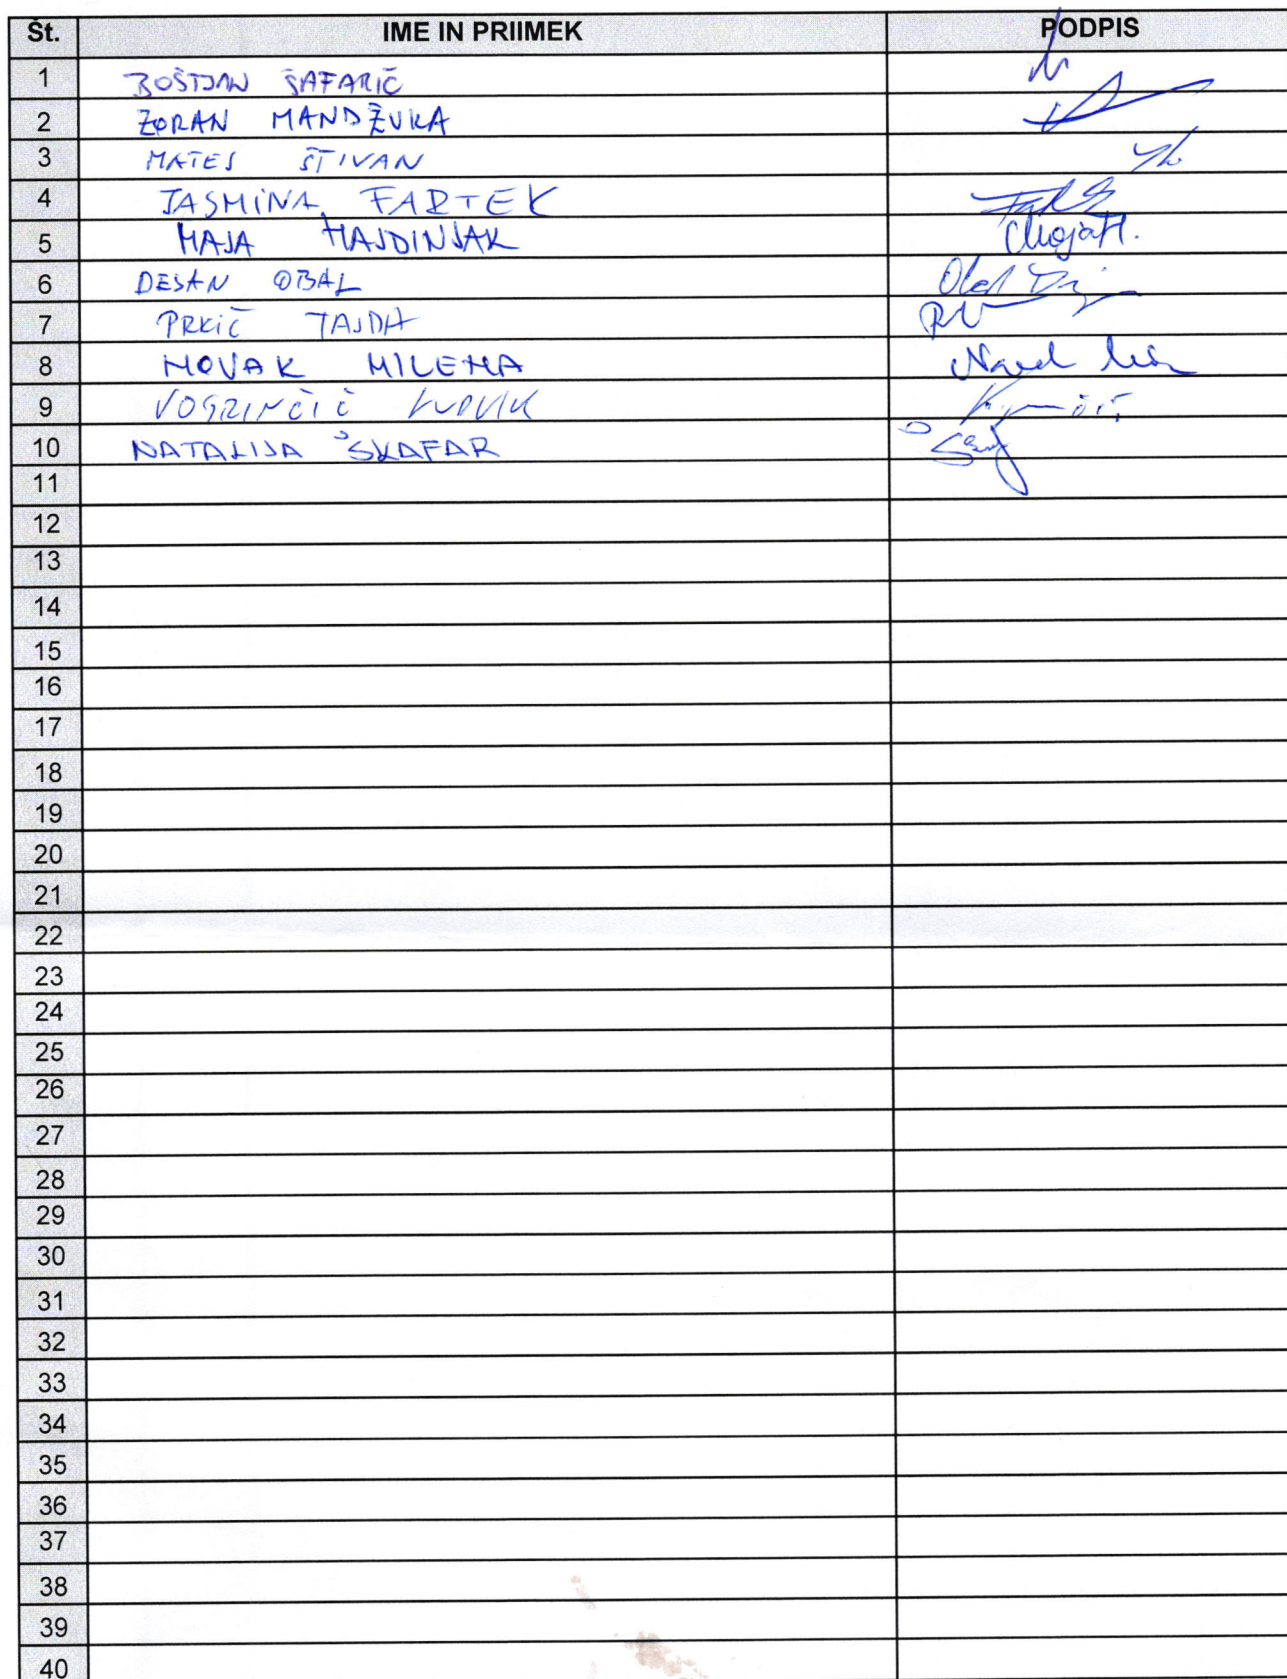 Št. IME IN PRIIMEK PODPIS
1 BOŠTJAN ŠAFARIČ
2 ZORAN MANDŽUKA
3 MATEJ ŠTIVAN
4 JASMINA FARTEK
5 MAJA HAJDINJAK Maja H.
6 DEJAN OBAL
7 PRKIČ TAJDA
8 NOVAK MILENA
9 VOGRINČIČ
10 NATALIJA ŠKAFAR
11
12
13
14
15
16
17
18
19
20
21
22
23
24
25
26
27
28
29
30
31
32
33
34
35
36
37
38
39
40